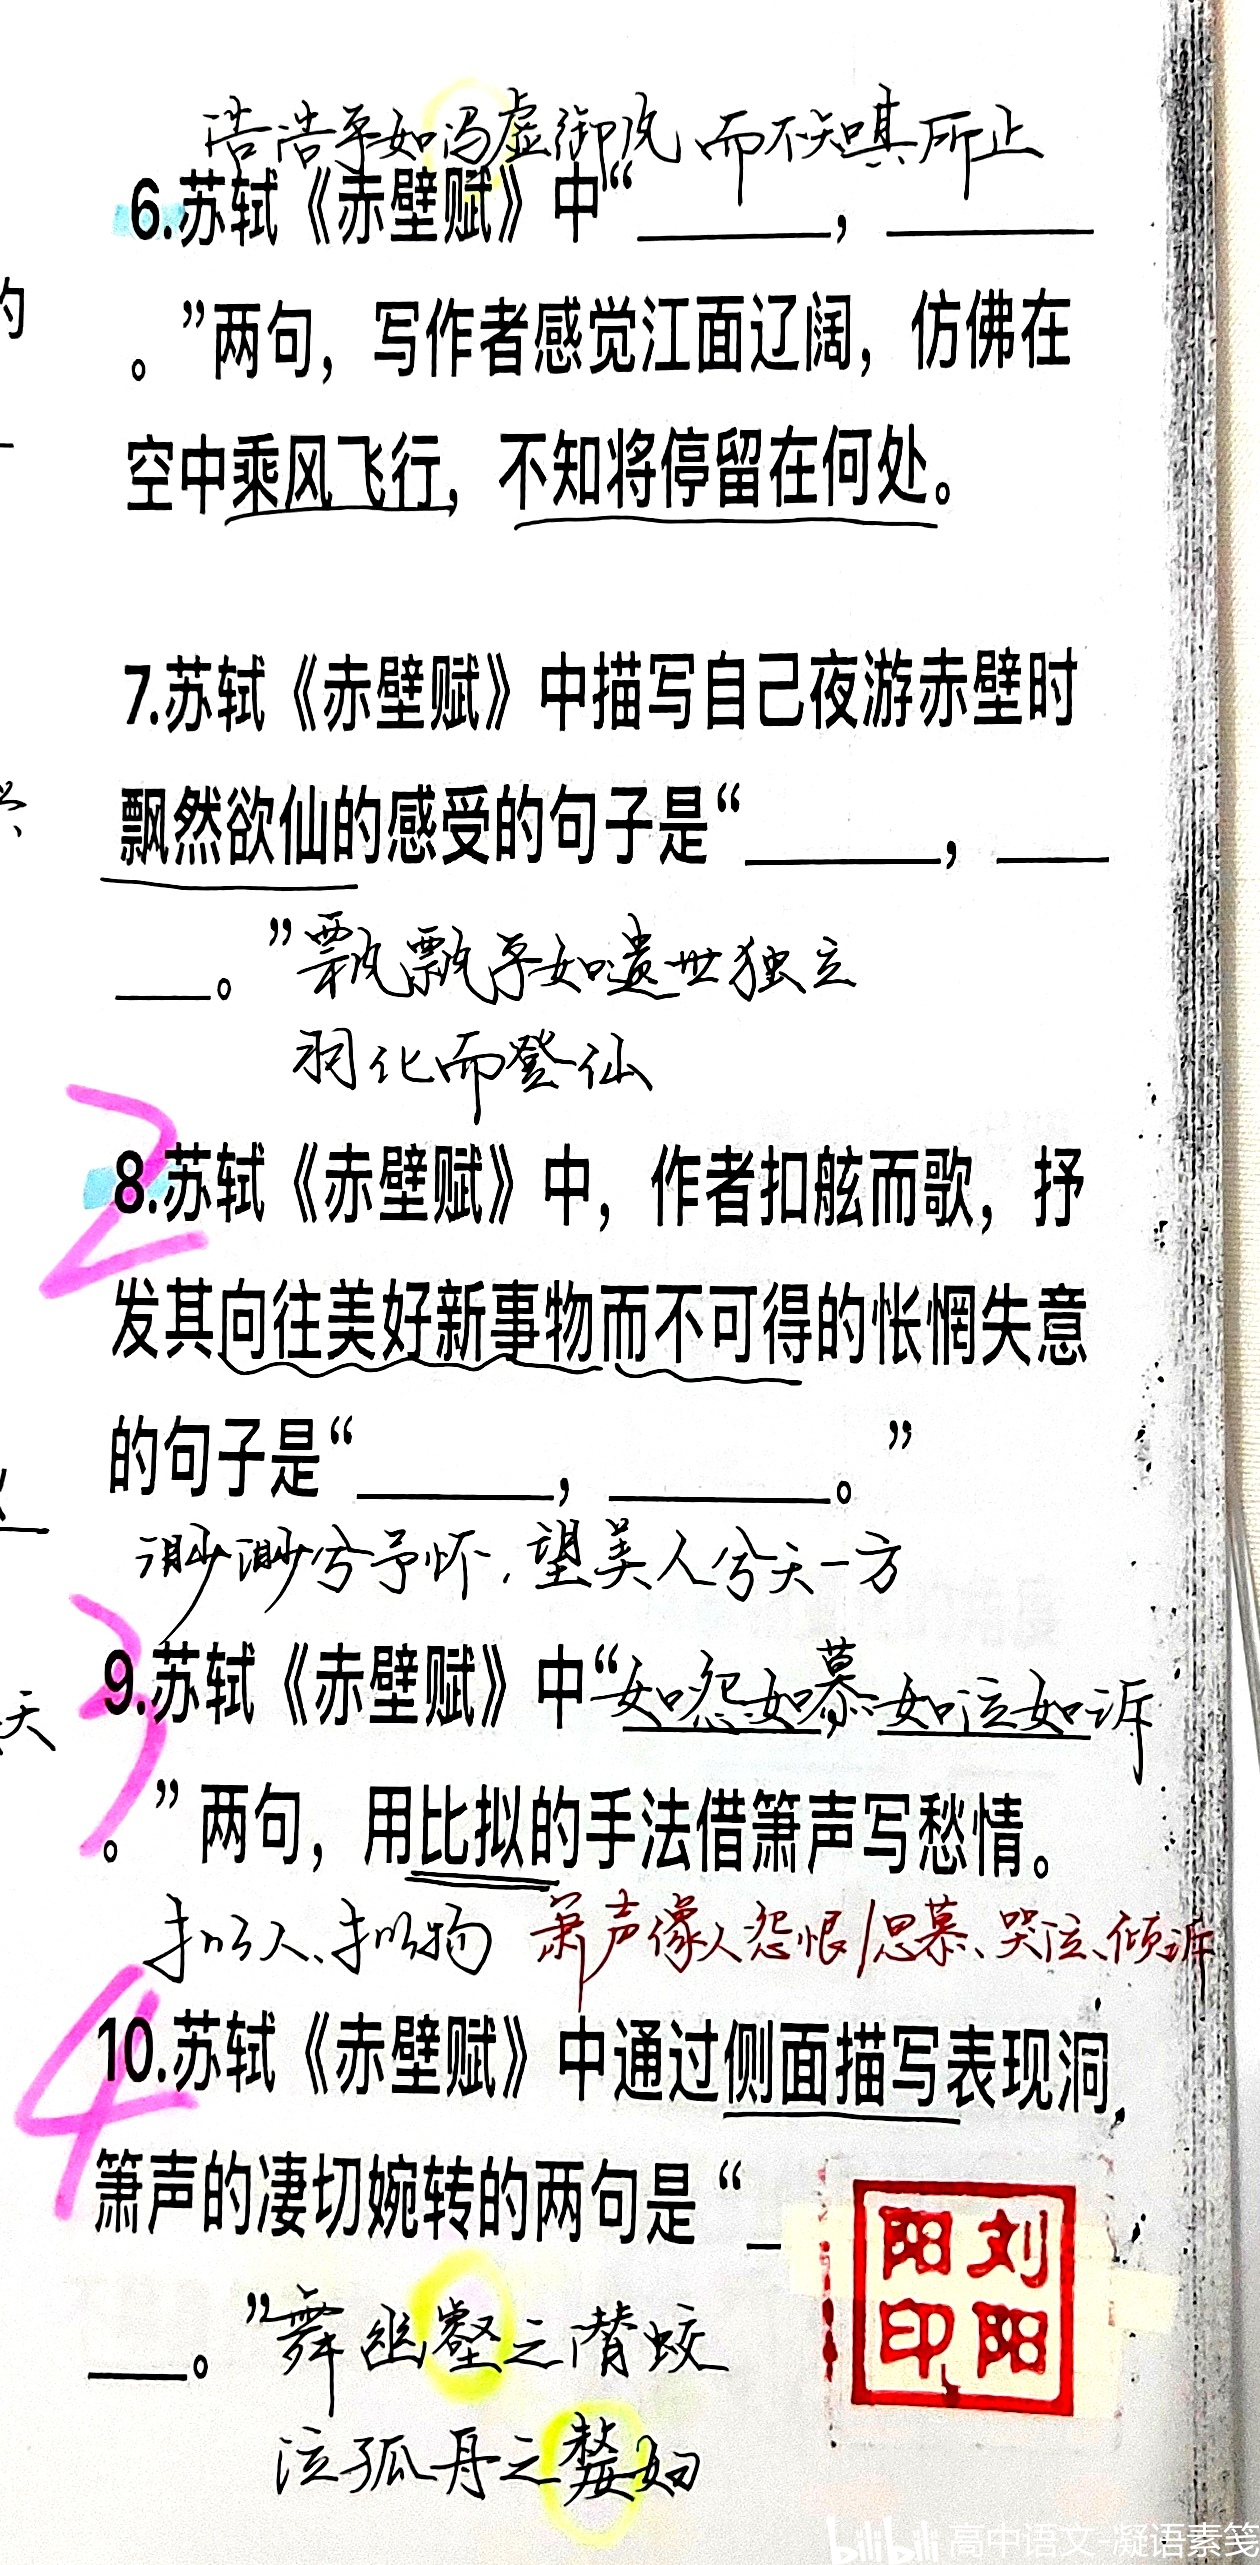 浩浩乎如冯虚御风 而不知其所止
6.苏轼《赤壁赋》中“______，______
。”两句，写作者感觉江面辽阔，仿佛在
空中乘风飞行，不知将停留在何处。
7.苏轼《赤壁赋》中描写自己夜游赤壁时
飘然欲仙的感受的句子是“______，___
___。”飘飘乎如遗世独立
羽化而登仙
2
8.苏轼《赤壁赋》中，作者扣舷而歌，抒
发其向往美好新事物而不可得的怅惘失意
的句子是“______，______。”
渺渺兮予怀，望美人兮天一方
3
9.苏轼《赤壁赋》中“如怨如慕，如泣如诉
。”两句，用比拟的手法借箫声写愁情。
拟人、拟物 箫声像人怨恨/思慕、哭泣、倾诉
4
10.苏轼《赤壁赋》中通过侧面描写表现洞
箫声的凄切婉转的两句是“_
___。”舞幽壑之潜蛟
泣孤舟之嫠妇
刘阳
阳印
的
天
bilibili 高中语文-凝语素笺